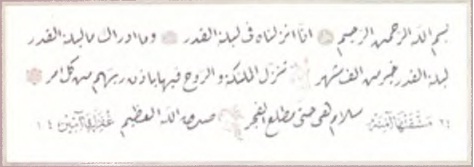 بسم الله الرحمن الرحيم انا انزلناه فى ليلة القدر وما ادراك ما ليلة القدر
ليلة القدر خير من الف شهر تنزل الملئكة والروح فيها باذن ربهم من كل امر
سلام هى حتى مطلع الفجر صدق الله العظيم